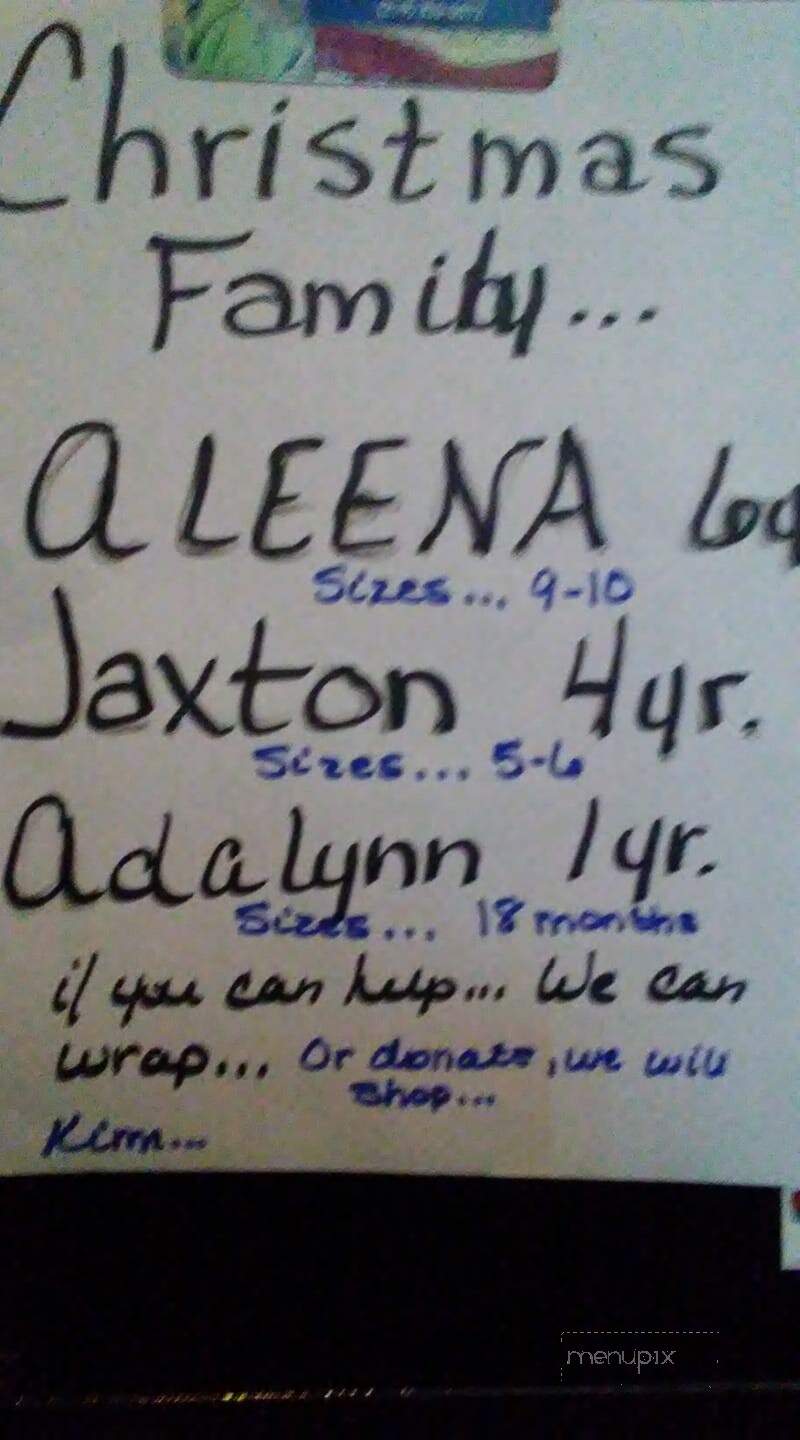 Christmas
Family...
ALEENA 6y
Sizes... 9-10
Jaxton 4yr.
Sizes... 5-6
Adalynn 1yr.
Sizes... 18 months
if you can help... We can
wrap... Or donate, we will
shop...
Kim...
menupix